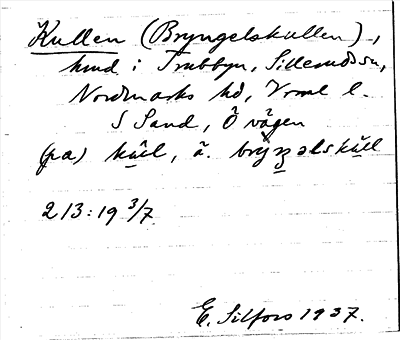 Kullen (Bryngelskullen),
hmd i Trubbyn, Silleruds sn,
Nordmarks hd, Vrml l.
S Sand, Ö vägen
(pa) kùl̥, ä. brỳŋəlskùll
213:19 3/7
E. Silfors 1937.